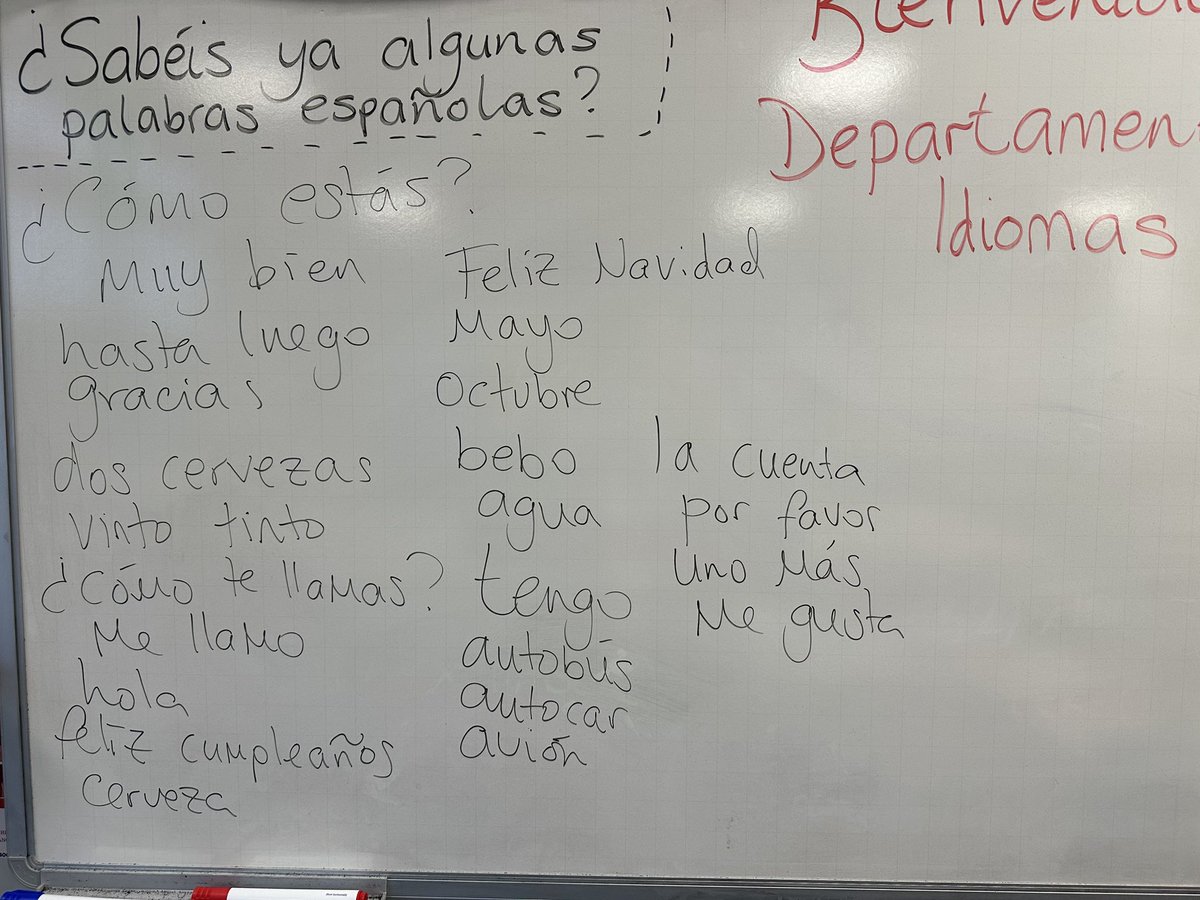 ¿Sabéis ya algunas
palabras españolas?
¿Cómo estás?
Muy bien
hasta luego
gracias
dos cervezas
vinto tinto
¿Cómo te llamas?
Me llamo
hola
feliz cumpleaños
cerveza
Feliz Navidad
Mayo
Octubre
bebo
agua
tengo
autobús
autocar
avión
la cuenta
por favor
uno más
Me gusta
Departamen
Idiomas